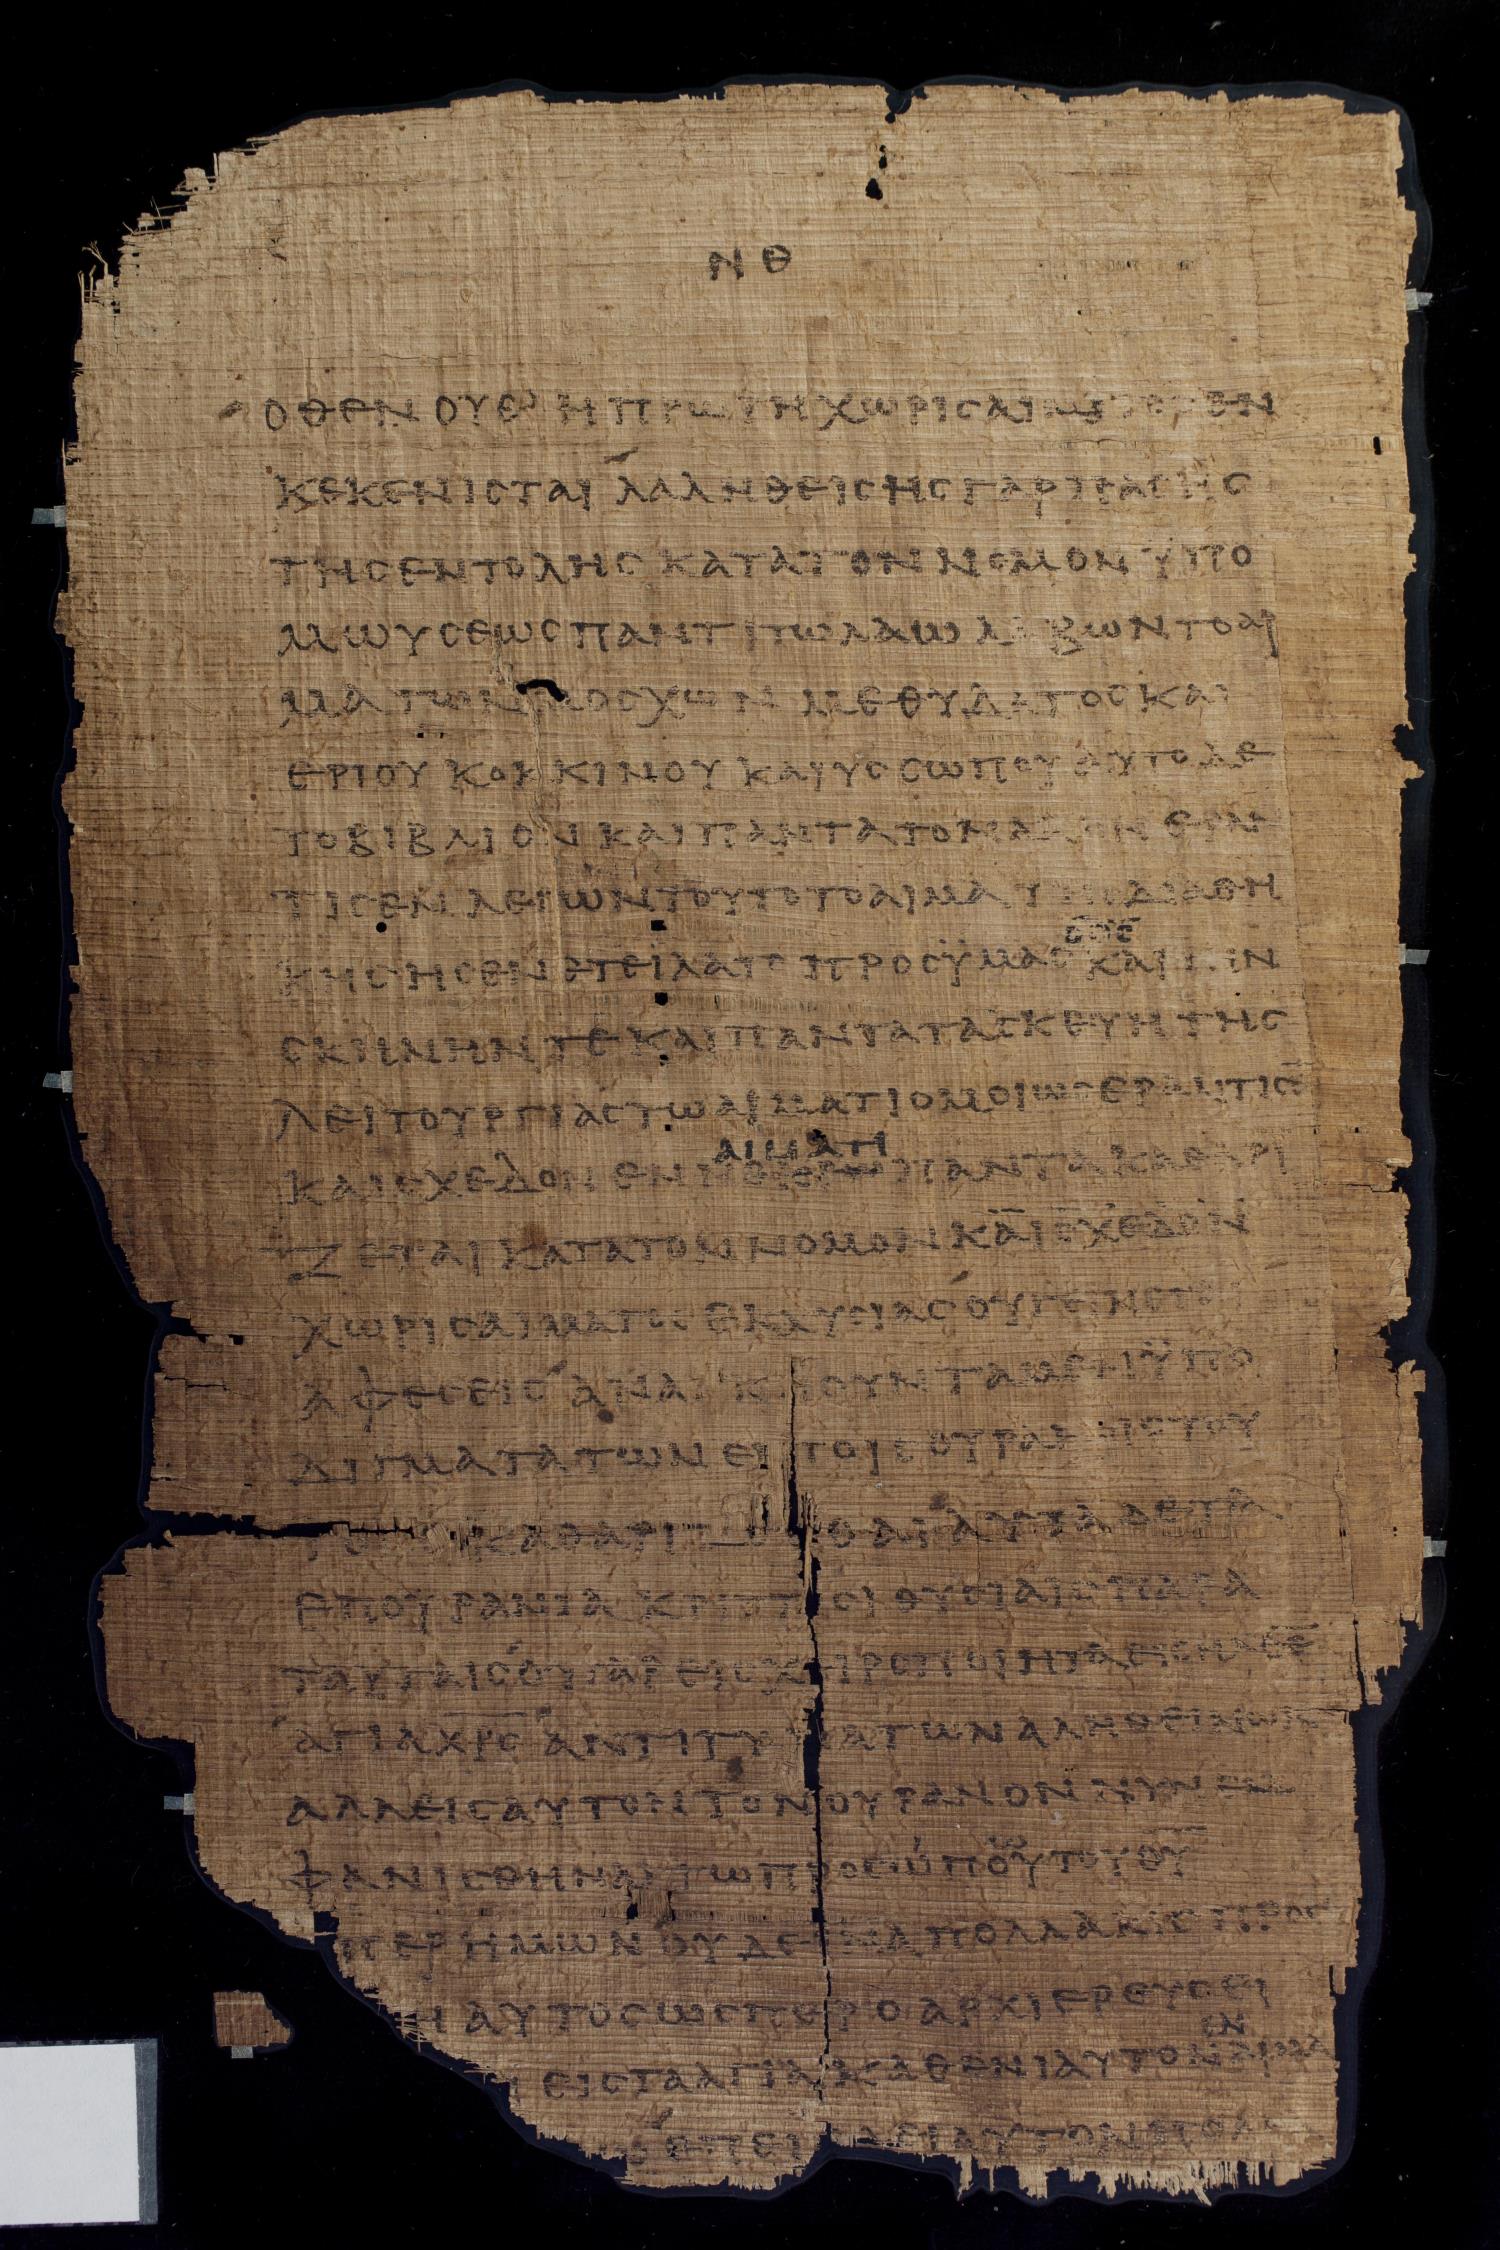 ΝΘ
ΟΘΕΝ ΟΥΕ Η ΠΡΩΤΗ ΧΩΡΙC
ΚΕΚΕΝΙCΤΑΙ ΛΑΛΗΘΕΙCΗC ΓΑΡ ΠΑCΗC
ΤΗC ΕΝΤΟΛΗC ΚΑΤΑ ΤΟΝ ΝΟΜΟΝ ΫΠΟ
ΜΩΥCΕΩC ΠΑΝΤΙ ΤΩ ΛΑΩ ΛΑΒΩΝ ΤΟ ΑΙ
ΜΑ ΤΩΝ ΜΟCΧΩΝ ΜΕΘ ΥΔΑΤΟC ΚΑΙ
ΕΡΙΟΥ ΚΟΚΚΙΝΟΥ ΚΑΙ ΥCCΩΠΟΥ ΑΥΤΟ ΔΕ
ΤΟ ΒΙΒΛΙΟΝ ΚΑΙ ΠΑΝΤΑ ΤΟΝ ΛΑΟΝ ΕΡΑΝ
ΤΙCΕΝ ΛΕΓΩΝ ΤΟΥΤΟ ΤΟ ΑΙΜΑ ΤΗC ΔΙΑΘΗ
Ο ΘC
ΚΗC ΗC ΕΝΕΤΕΙΛΑΤΟ ΠΡΟC ΫΜΑC ΚΑΙ ΤΗΝ
CΚΗΝΗΝ ΤΕ ΚΑΙ ΠΑΝΤΑ ΤΑ CΚΕΥΗ ΤΗC
ΛΕΙΤΟΥΡΓΙΑC ΤΩ ΑΙΜΑΤΙ ΟΜΟΙΩC ΕΡΑΝΤΙCΕ
ΑΙΜΑΤΙ
ΚΑΙ CΧΕΔΟΝ ΕΝ ΠΑΝΤΑ ΚΑΘΑΡΙ
ΖΕΤΑΙ ΚΑΤΑ ΤΟΝ ΝΟΜΟΝ ΚΑΙ CΧΕΔΟΝ
ΧΩΡΙC ΑΙΜΑΤΕΚΧΥCΙΑC ΟΥ ΓΕΙΝΕΤΑΙ
ΑΦΕCΕΙC ΑΝΑΓΚΗ ΟΥΝ ΤΑ ΜΕΝ ΫΠΟ
ΔΙΓΜΑΤΑ ΤΩΝ ΕΝ ΤΟΙC ΟΥΡΑΝΟΙC ΤΟΥ
ΚΑΘΑΡΙΖΕCΘΑΙ ΑΥΤΑ ΔΕ ΤΑ
ΕΠΟΥΡΑΝΙΑ ΚΡΙΤΤΟCΙ ΘΥCΙΑΙC ΠΑΡΑ
ΤΑΥΤΑΙC ΟΥ ΓΑΡ ΕΙC ΧΙΡΟΠΟΙΗΤΑ ΕΙCΗΛΘΕ
ΑΓΙΑ ΧΡC ΑΝΤΙΤΥΠΑ ΤΩΝ ΑΛΗΘΕΙΝΩΝ
ΑΛΛ ΕΙC ΑΥΤΟΝ ΤΟΝ ΟΥΡΑΝΟΝ ΝΥΝ ΕΝ
ΦΑΝΙCΘΗΝΑΙ ΤΩ ΠΡΟCΩΠΟΥ ΤΟΥ ΘΥ
ΠΕΡ ΗΜΩΝ ΟΥΔΕ ΙΝΑ ΠΟΛΛΑΚΙC ΠΡΟC
Η ΑΥΤΟC ΩCΠΕΡ Ο ΑΡΧΙΕΡΕΥC ΕΙ
ΕΝ
ΕΙC ΤΑ ΑΓΙΑ ΚΑΘ ΕΝΙΑΥΤΟΝ ΑΙΜΑ
ΕΠΕΙ ΑΥΤΟΝ